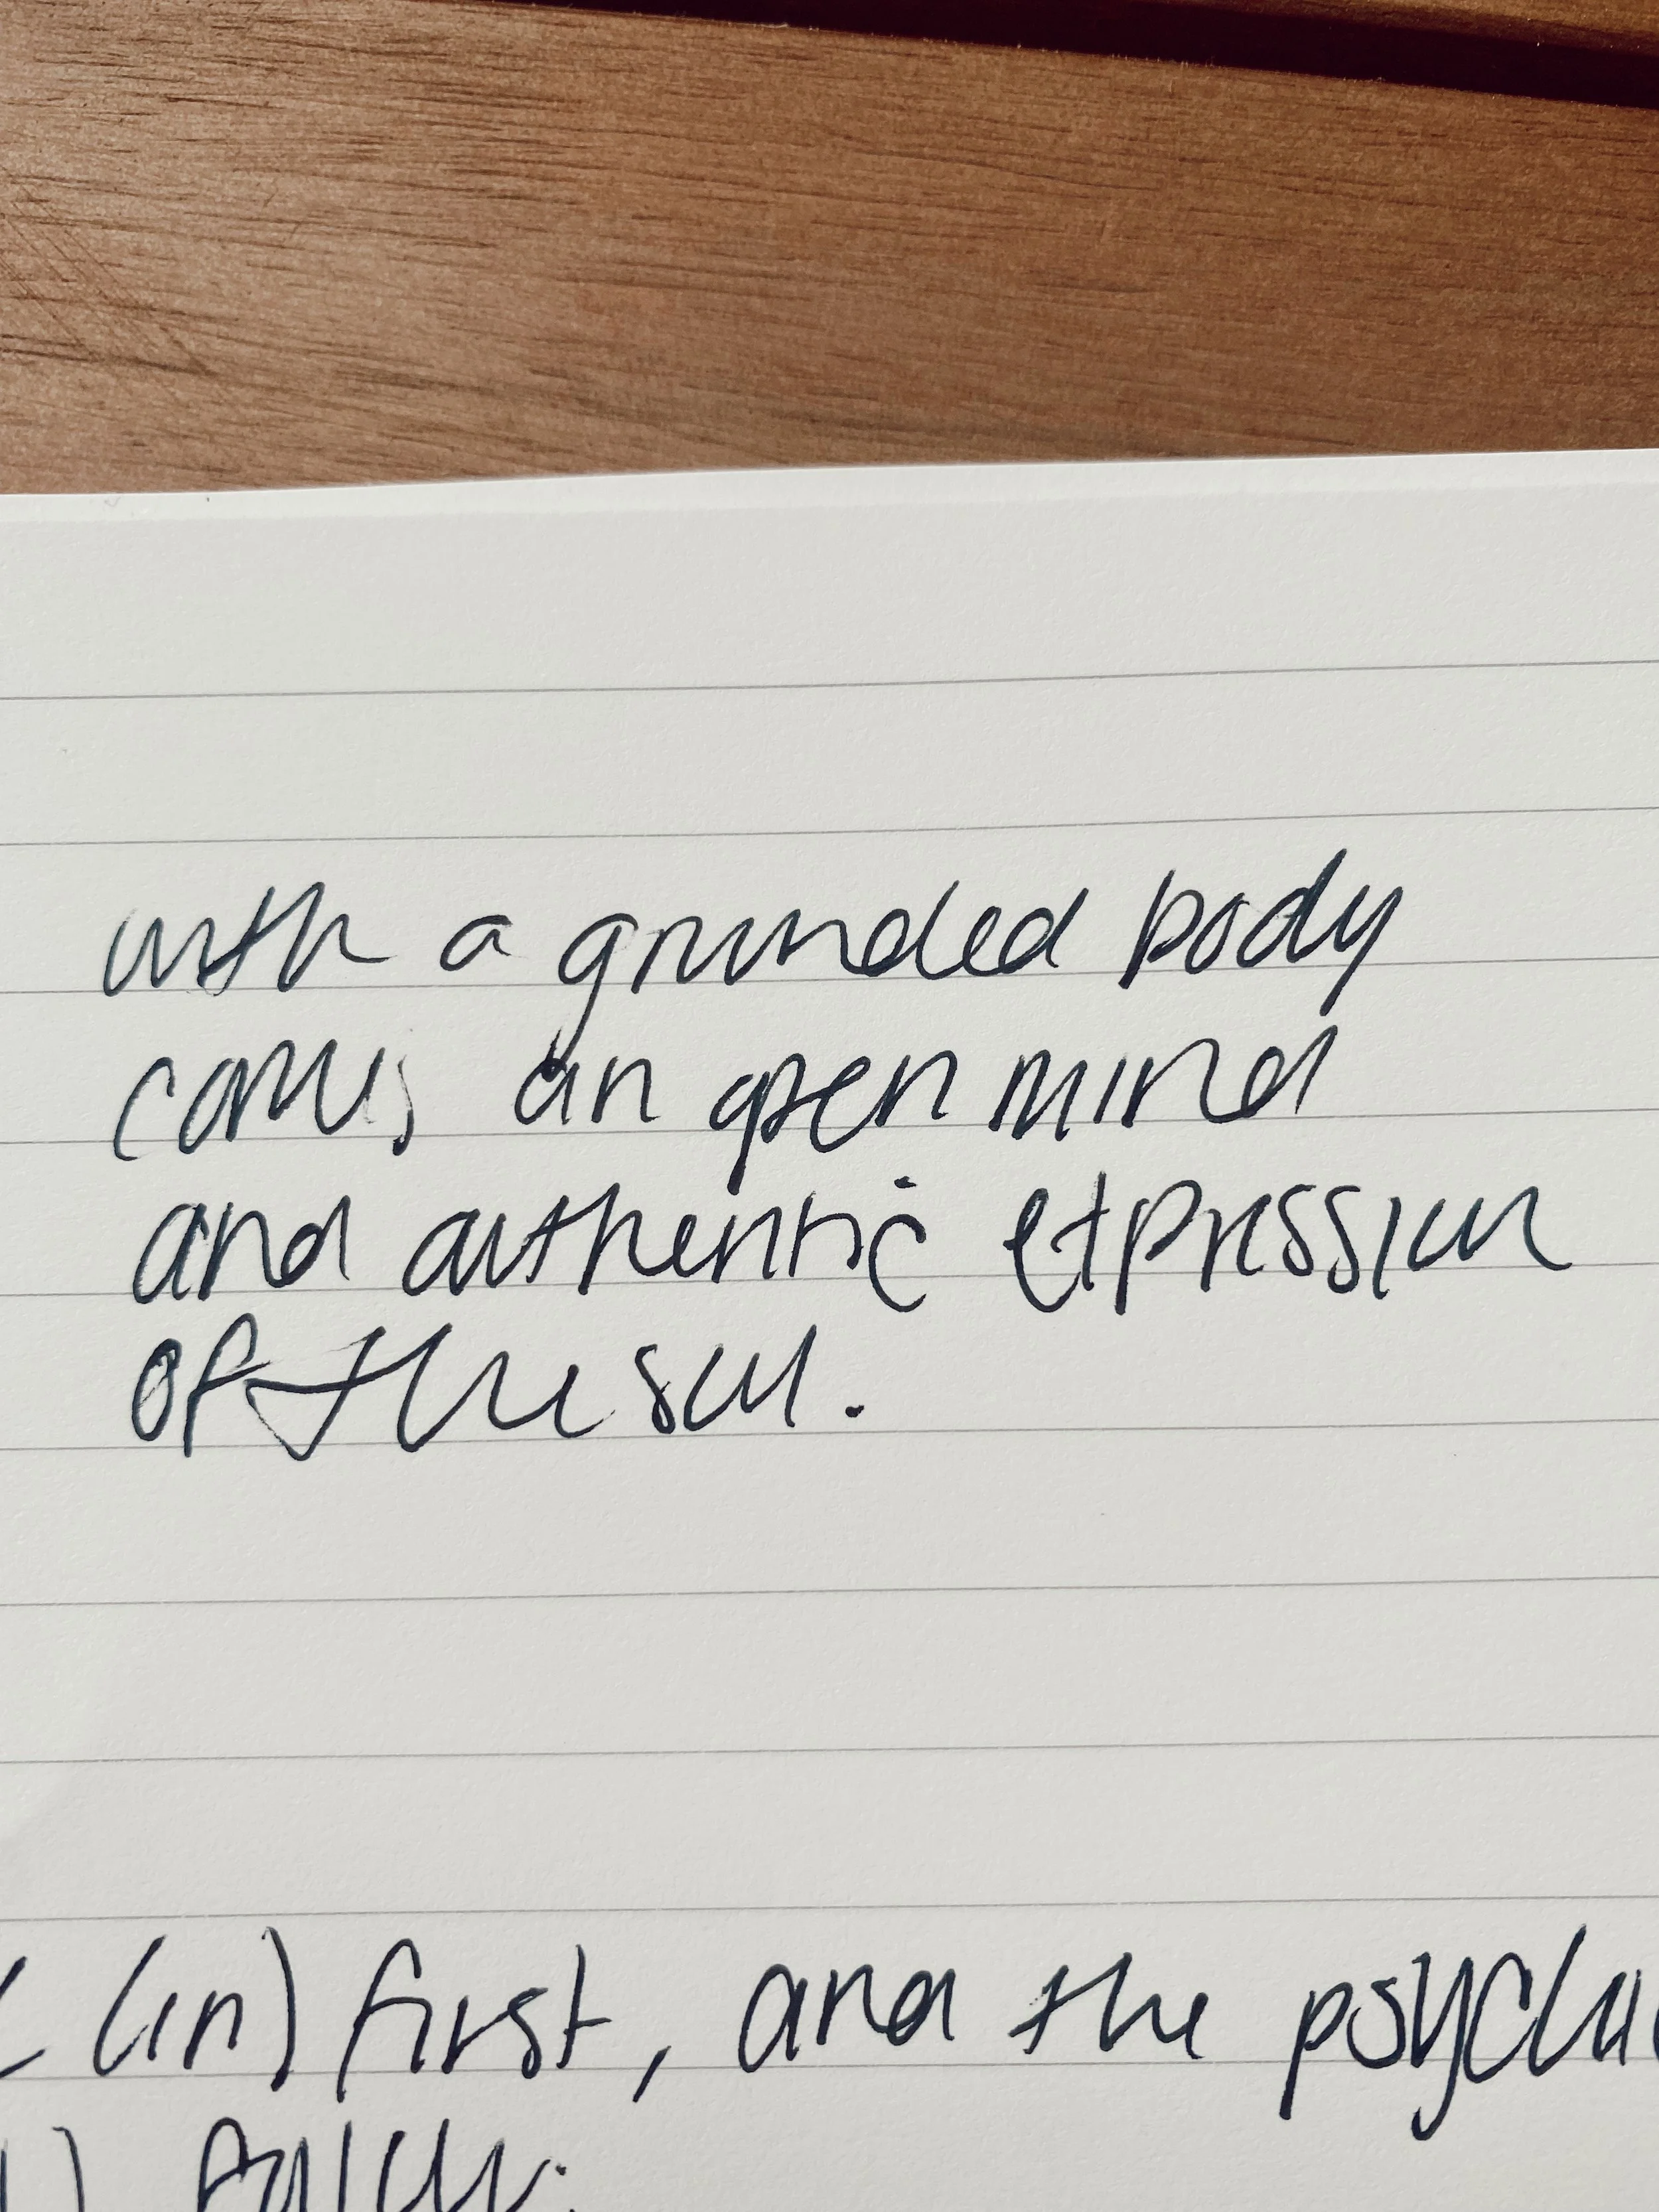 with a grounded body
comes an open mind
and authentic expression
of the soul.
(in) first, and the